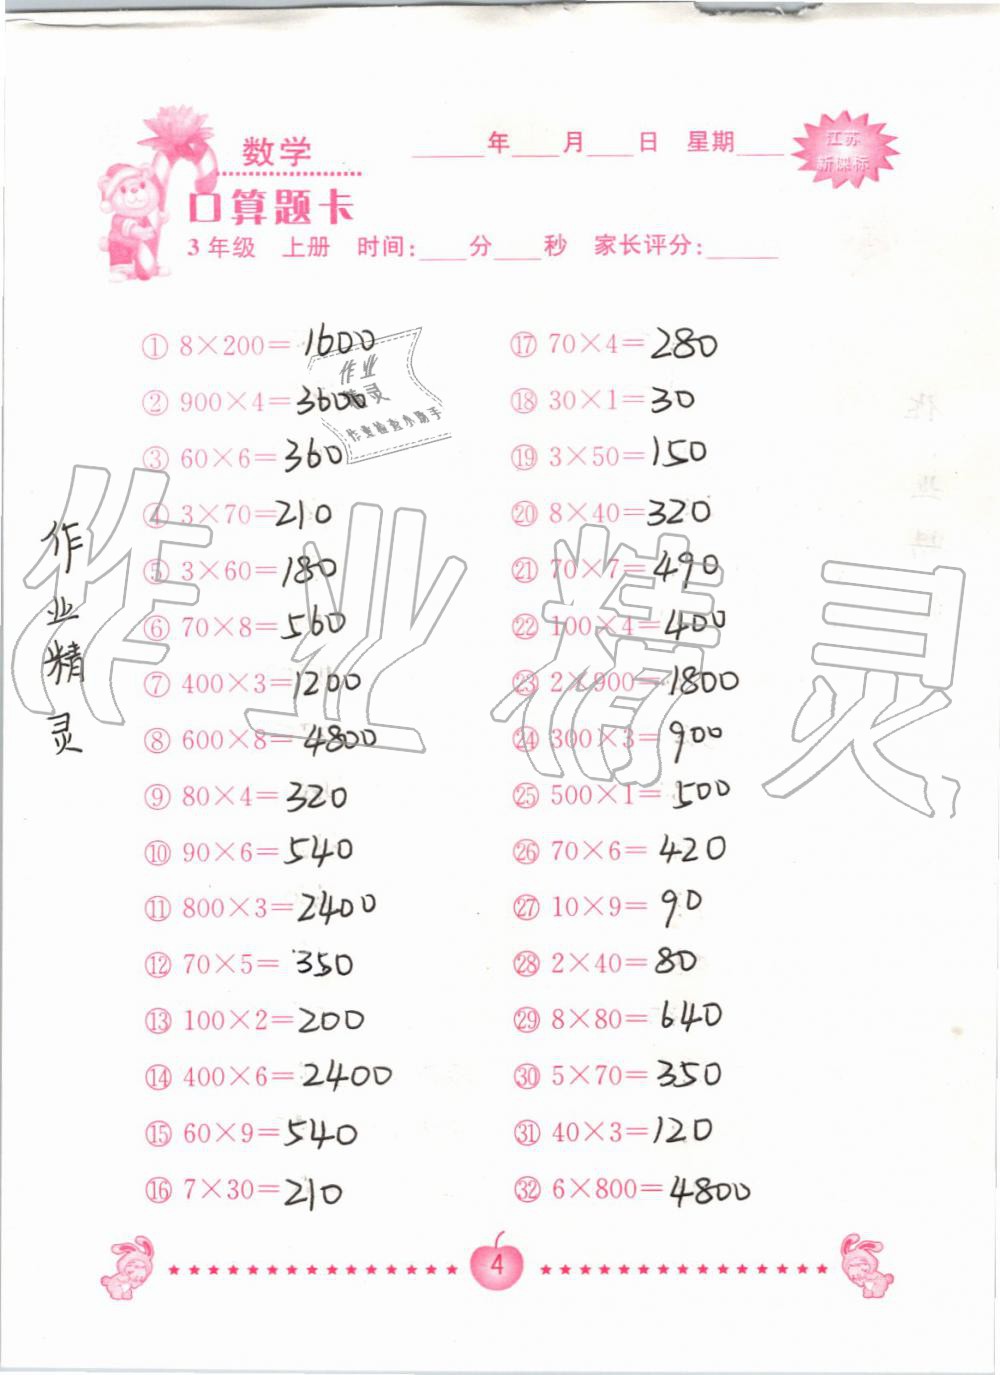 数学
口算题卡
____年____月____日 星期____
江苏
新课标
3年级 上册 时间:____分____秒 家长评分:____
① 8×200=1600
② 900×4=3600
③ 60×6=360
④ 3×70=210
⑤ 3×60=180
⑥ 70×8=560
⑦ 400×3=1200
⑧ 600×8=4800
⑨ 80×4=320
⑩ 90×6=540
⑪ 800×3=2400
⑫ 70×5=350
⑬ 100×2=200
⑭ 400×6=2400
⑮ 60×9=540
⑯ 7×30=210
⑰ 70×4=280
⑱ 30×1=30
⑲ 3×50=150
⑳ 8×40=320
㉑ 70×7=490
㉒ 100×4=400
㉓ 2×900=1800
㉔ 300×3=900
㉕ 500×1=500
㉖ 70×6=420
㉗ 10×9=90
㉘ 2×40=80
㉙ 8×80=640
㉚ 5×70=350
㉛ 40×3=120
㉜ 6×800=4800
作业
精灵
作业检查小助手
作业精灵
作业精灵
4